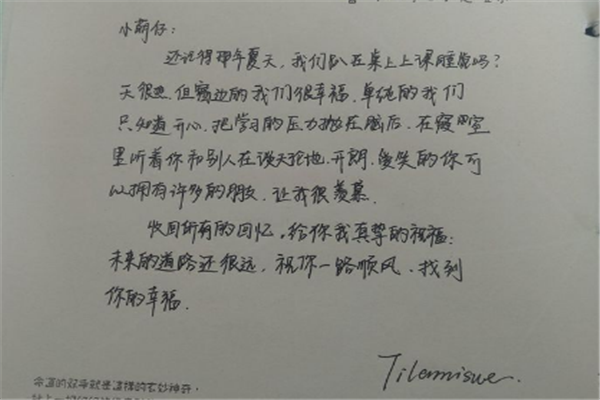 小萌仔：
还记得那年夏天，我们趴在桌上上课睡觉吗？
天很热，但窗边的我们很幸福，单纯的我们
只知道开心，把学习的压力抛在脑后，在寝室
里听着你和别人在谈天抢地，开朗，爱笑的你可
以拥有许多的朋友，让我很羡慕.
收回所有的回忆，给你我真挚的祝福：
未来的道路还很远，祝你一路顺风，找到
你的幸福.
Tilamisue.
命运的双手就是这样的玄妙神奇，